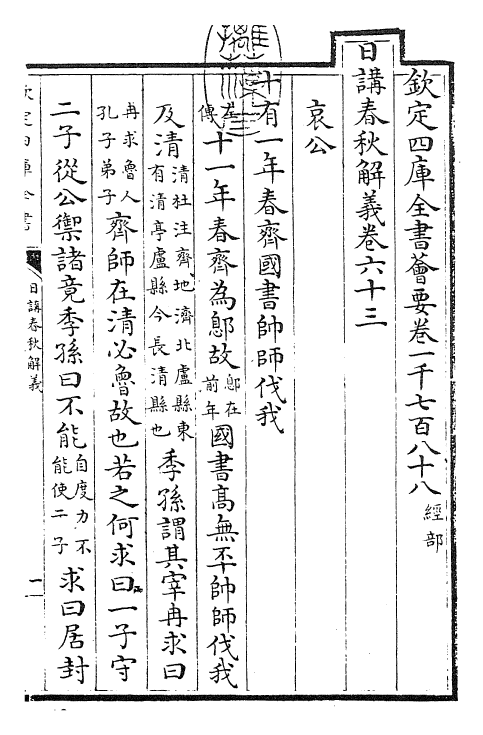 欽定四庫全書薈要卷一千七百八十八 經部
日講春秋解義卷六十三
哀公
十有一年春齊國書帥師伐我
左傳十一年春齊為鄎故鄎在前年國書高無㔻帥師伐我
及清清杜注齊地濟北盧縣東有清亭盧縣今長清縣也季孫謂其宰冉求曰
冉求魯人孔子弟子齊師在清必魯故也若之何求曰一子守
二子從公禦諸竟季孫曰不能自度力不能使二子求曰居封
日講春秋解義
一